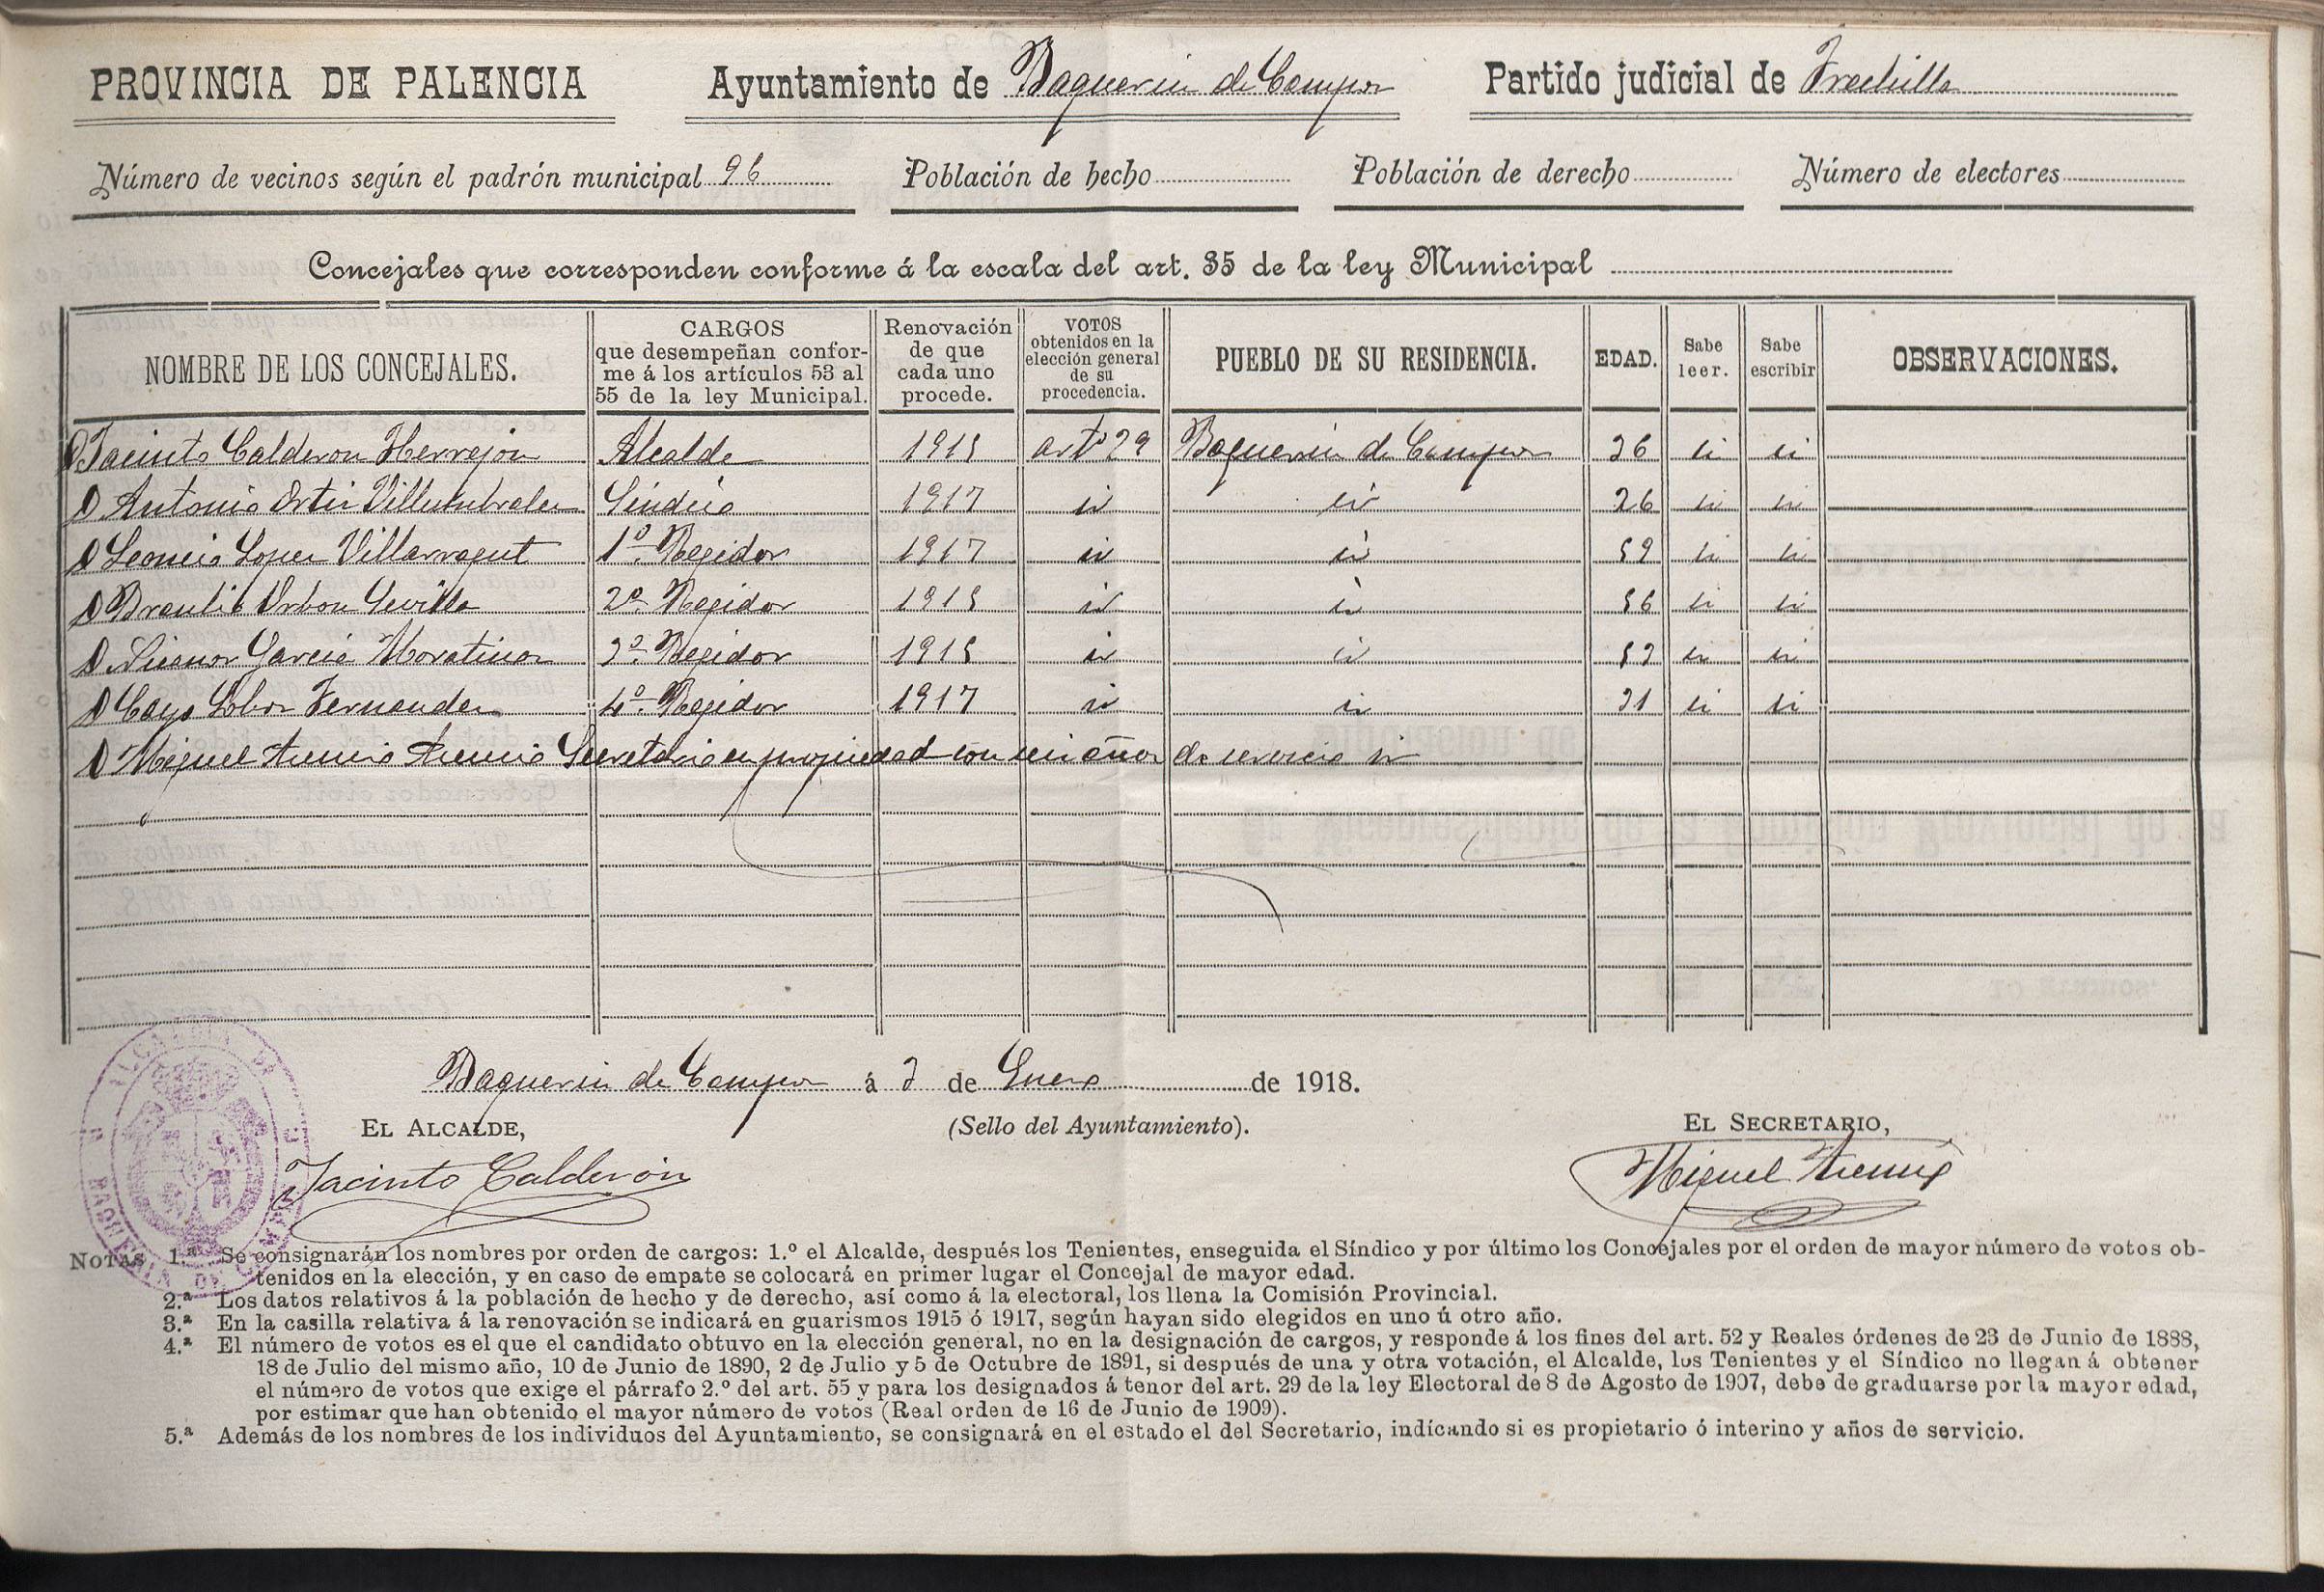 PROVINCIA DE PALENCIA Ayuntamiento de Baquerin de Campos Partido judicial de Frechilla
Número de vecinos según el padrón municipal 96 Población de hecho Población de derecho Número de electores
Concejales que corresponden conforme á la escala del art. 35 de la ley Municipal
NOMBRE DE LOS CONCEJALES. CARGOS que desempeñan confor-me á los artículos 53 al 55 de la ley Municipal. Renovación de que cada uno procede. VOTOS obtenidos en la elección general de su procedencia. PUEBLO DE SU RESIDENCIA. EDAD. Sabe leer. Sabe escribir OBSERVACIONES.
D Jacinto Calderon Herrejon Alcalde 1915 artº 29 Baquerin de Campos 36 si si
D Antonio Ortiz Villumbrales Sindico 1917 id id 26 si si
D Leoncio Lopez Villarragut 1º Regidor 1917 id id 59 si si
D Braulio Urbon Sevilla 2º Regidor 1915 id id 56 si si
D Nicanor Garcia Moratinos 3º Regidor 1915 id id 53 si si
D Cayo Lobon Fernandez 4º Regidor 1917 id id 31 si si
D Miguel Asensio Asensio Secretario en propiedad con seis años de servicio
Baquerin de Campos á 3 de Enero de 1918.
EL ALCALDE, (Sello del Ayuntamiento). EL SECRETARIO,
Jacinto Calderón Miguel Asensio
ALCALDIA DE BAQUERIN DE CAMPOS
NOTAS 1.ª Se consignarán los nombres por orden de cargos: 1.º el Alcalde, después los Tenientes, enseguida el Síndico y por último los Concejales por el orden de mayor número de votos ob-
tenidos en la elección, y en caso de empate se colocará en primer lugar el Concejal de mayor edad.
2.ª Los datos relativos á la población de hecho y de derecho, así como á la electoral, los llena la Comisión Provincial.
3.ª En la casilla relativa á la renovación se indicará en guarismos 1915 ó 1917, según hayan sido elegidos en uno ú otro año.
4.ª El número de votos es el que el candidato obtuvo en la elección general, no en la designación de cargos, y responde á los fines del art. 52 y Reales órdenes de 23 de Junio de 1888,
18 de Julio del mismo año, 10 de Junio de 1890, 2 de Julio y 5 de Octubre de 1891, si después de una y otra votación, el Alcalde, los Tenientes y el Síndico no llegan á obtener
el número de votos que exige el párrafo 2.º del art. 55 y para los designados á tenor del art. 29 de la ley Electoral de 8 de Agosto de 1907, debe de graduarse por la mayor edad,
por estimar que han obtenido el mayor número de votos (Real orden de 16 de Junio de 1909).
5.ª Además de los nombres de los individuos del Ayuntamiento, se consignará en el estado el del Secretario, indicando si es propietario ó interino y años de servicio.